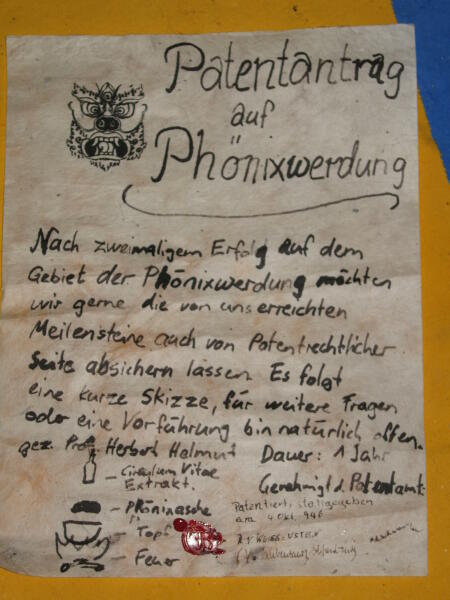 Patentantrag
auf
Phönixwerdung
Nach zweimaligem Erfolg auf dem
Gebiet der Phönixwerdung möchten
wir gerne die von uns erreichten
Meilensteine auch von Patentrechtlicher
Seite absichern lassen. Es folgt
eine kurze Skizze, für weitere Fragen
oder eine Vorführung bin natürlich offen.
gez. Prof. Herbert Helmut
Dauer: 1 Jahr
Extrakt.
Genehmigt d. Patentamt
- Phönixasche
- Topf
- Feuer
Patentiert, stattgegeben
am 4. Okt. 946